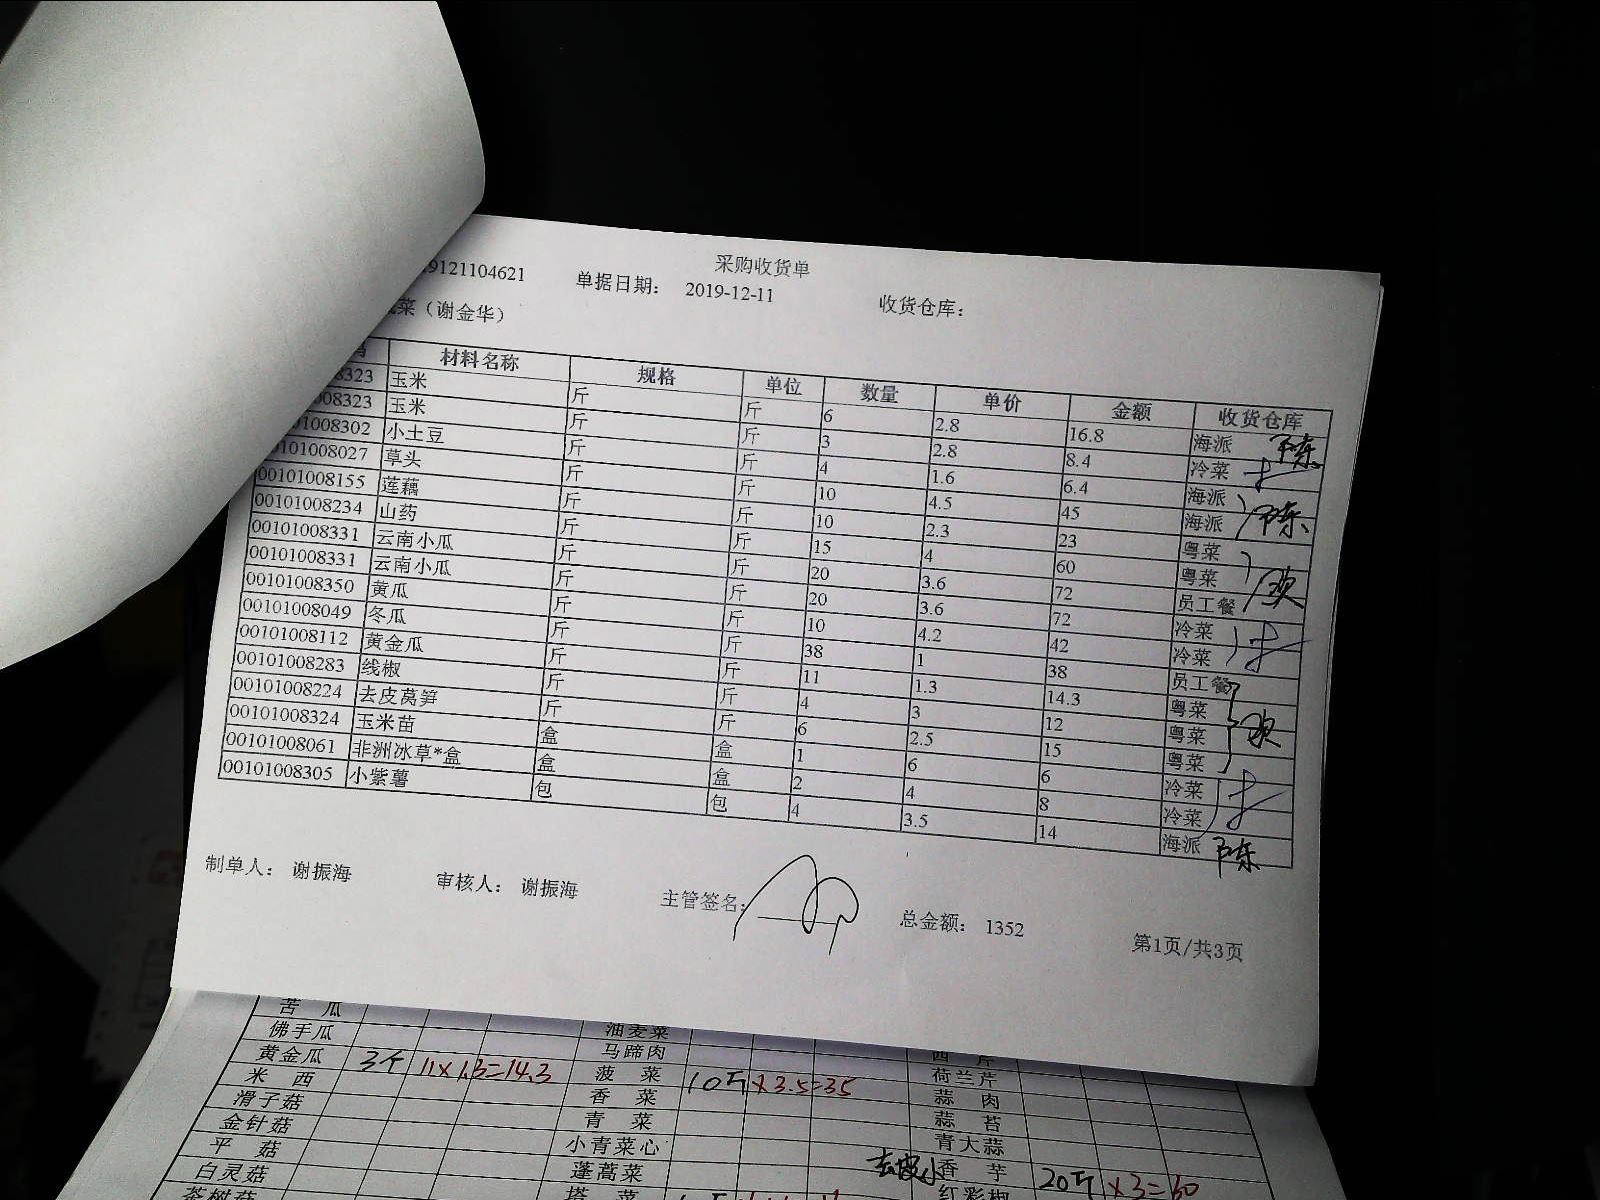 采购收货单
9121104621 单据日期： 2019-12-11 收货仓库：
菜（谢金华）
材料名称 规格 单位 数量 单价 金额 收货仓库
8323 玉米 斤 斤 6 2.8 16.8 海派 陈
08323 玉米 斤 斤 3 2.8 8.4 冷菜
01008302 小土豆 斤 斤 4 1.6 6.4 海派
101008027 草头 斤 斤 10 4.5 45 海派 陈
00101008155 莲藕 斤 斤 10 2.3 23 粤菜
00101008234 山药 斤 斤 15 4 60 粤菜
00101008331 云南小瓜 斤 斤 20 3.6 72 员工餐
00101008331 云南小瓜 斤 斤 20 3.6 72 冷菜
00101008350 黄瓜 斤 斤 10 4.2 42 冷菜
00101008049 冬瓜 斤 斤 38 1 38 员工餐
00101008112 黄金瓜 斤 斤 11 1.3 14.3 粤菜
00101008283 线椒 斤 斤 4 3 12 粤菜
00101008224 去皮莴笋 斤 斤 6 2.5 15 粤菜
00101008324 玉米苗 盒 盒 1 6 6 冷菜
00101008061 非洲冰草*盒 盒 盒 2 4 8 冷菜
00101008305 小紫薯 包 包 4 3.5 14 海派 陈
制单人： 谢振海 审核人： 谢振海 主管签名： 总金额： 1352 第1页/共3页
苦 瓜 油麦菜
佛手瓜 马蹄肉 西 芹
黄金瓜 3个 11×1.3=14.3 菠 菜 10斤 ×3.5=35 荷兰芹
米 西 香 菜 蒜 肉
滑子菇 青 菜 蒜 苔
金针菇 小青菜心 青大蒜
平 菇 蓬蒿菜 去皮小香 芋 20斤 ×3=60
白灵菇 塔 菜 红彩椒
茶树菇